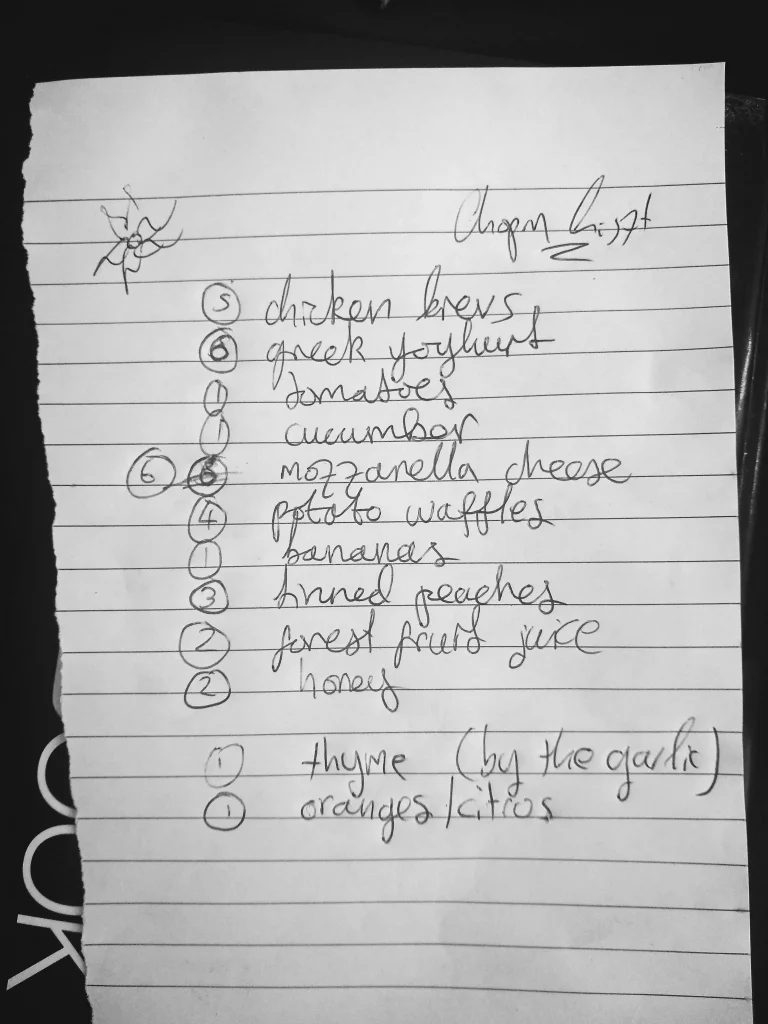 List
5 chicken
6 greek yoghurt
1 tomatoes
1 cucumber
6 mozzarella cheese
4 potato waffles
1 bananas
3 tinned peaches
2 forest fruit juice
2 honey
1 thyme (by the garlic)
1 oranges/citros
OOK